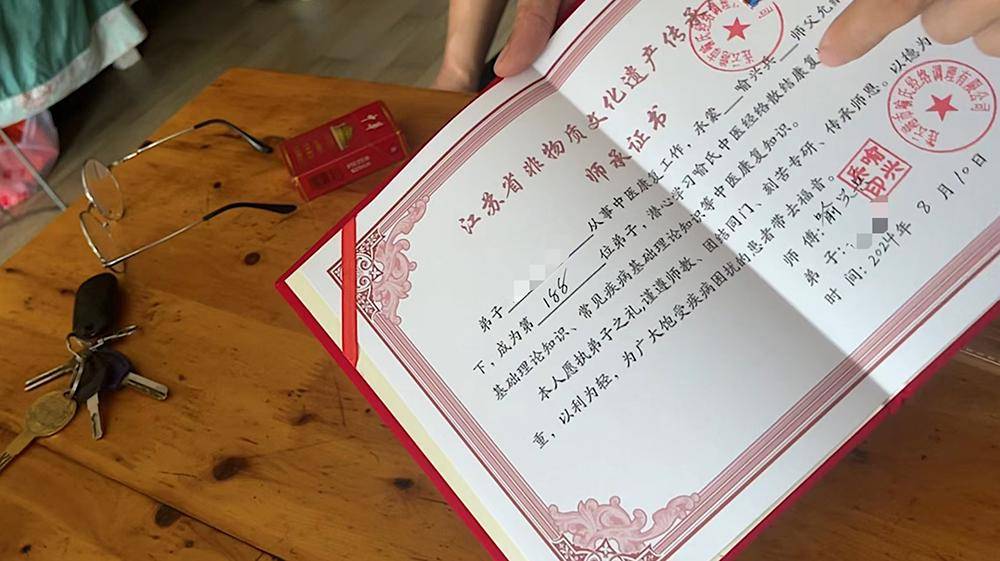 江苏省非物质文化遗产传
师承证书
弟子 从事中医康复工作，承蒙 喻兴兵 师父允
下，成为第 188 位弟子，潜心学习喻氏中医经络散结康复
基础理论知识、常见疾病基础理论知识等中医康复知识。
本人愿执弟子之礼，谨遵师教、团结同门、刻苦专研、传承师恩。以德为
重，以利为轻，为广大饱受疾病困扰的患者带去福音。
师傅：喻兴
弟子：
时间：2024年8月10日
喻氏经络调理有限公司